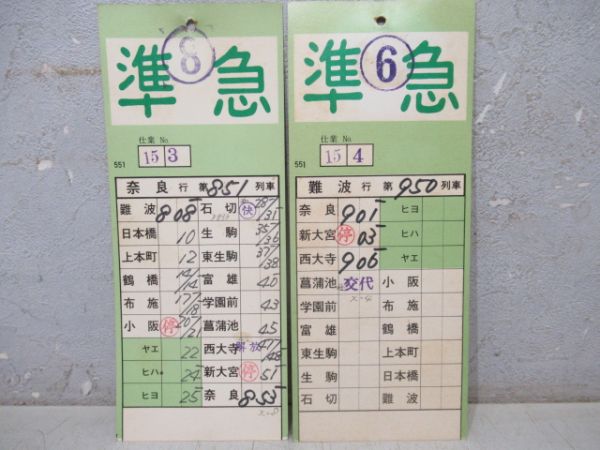 8
準急
仕業 No.
15 3
551
奈良 行 第 851 列車
難波 8 08
日本橋 10
上本町 12
鶴橋 14
布施 17 18
小阪 停 20 21
ヤエ 22
ヒハ 24
ヒヨ 25
石切 快 31
生駒 35 36
東生駒 37 38
富雄 40
学園前 43
菖蒲池 45
西大寺 解放 47 48
新大宮 停 51
奈良 8 53
X-8
6
準急
仕業 No.
15 4
551
難波 行 第 950 列車
奈良 9 01
新大宮 停 03
西大寺 9 06
菖蒲池 交代
X-4
学園前
富雄
東生駒
生駒
石切
ヒヨ
ヒハ
ヤエ
小阪
布施
鶴橋
上本町
日本橋
難波